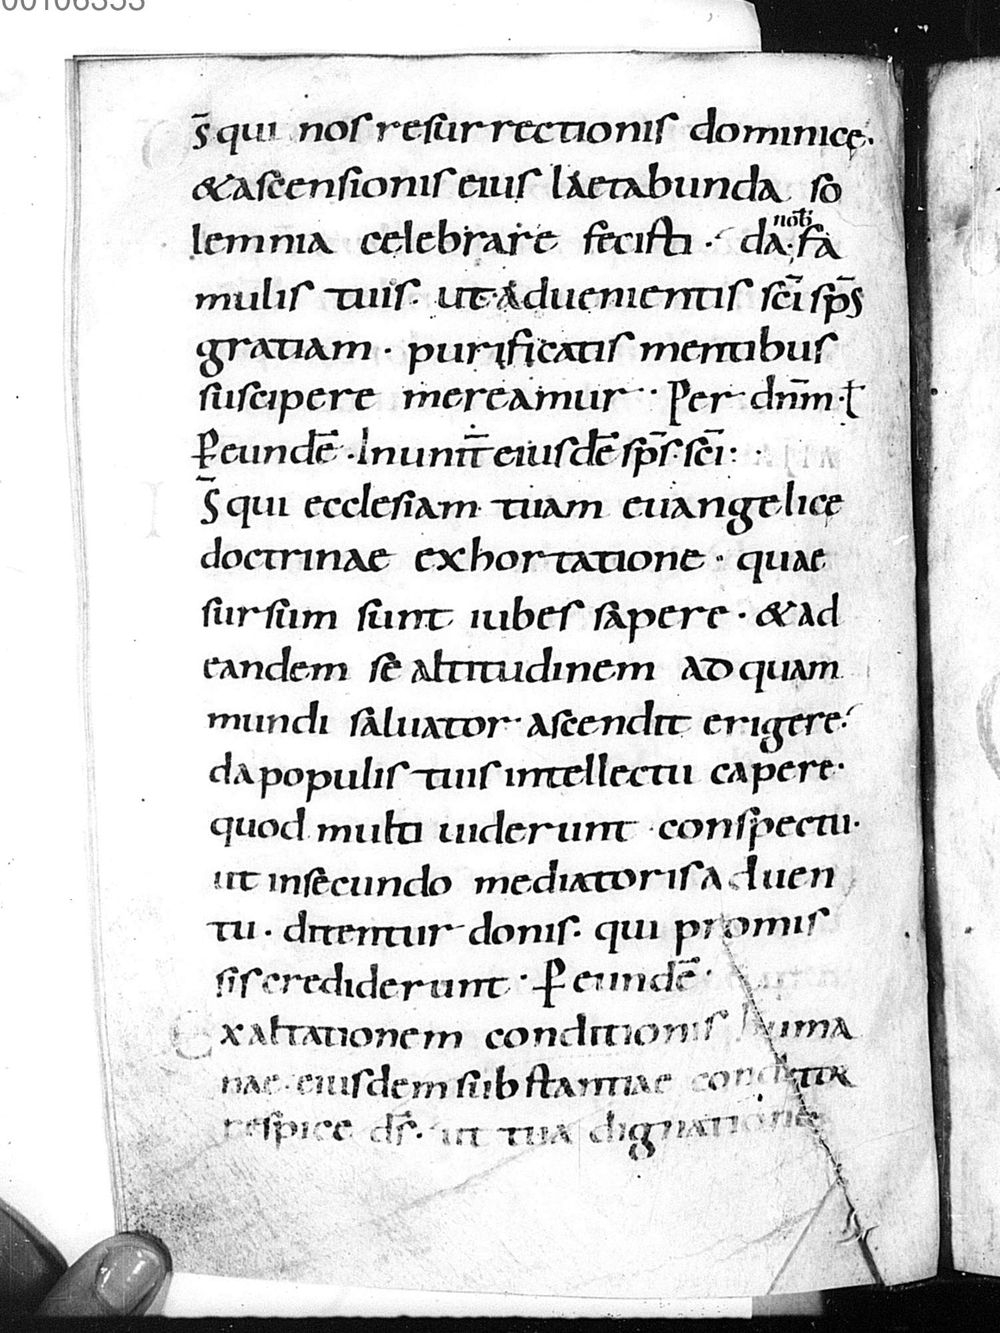 00106353
s̄ qui nos resurrectionis dominicę·
& ascensionis eius laetabunda so
lemnia celebrare fecisti · da· nob̄ fa
mulis tuis· ut· aduenientis sc̄i sp̄s
gratiam · purificatis mentibus
suscipere mereamur · Per dn̄m · ł
P̲ eundē · In unit̄ eiusdē sp̄s· sc̄i :
S̄ qui ecclesiam tuam euangelicę
doctrinae exhortatione · quae
sursum sunt iubes sapere · & ad
eandem se altitudinem ad quam
mundi saluator· ascendit erigere·
da populis tuis intellectu capere·
quod multi uiderunt · conspectu·
ut in secundo mediatoris aduen
tu · ditentur donis· qui promis
sis crediderunt · P̲ eundē ·
Exaltationem conditionis huma
nae· eiusdem substantiae conditor
respice ds̄· ut tua dignatione